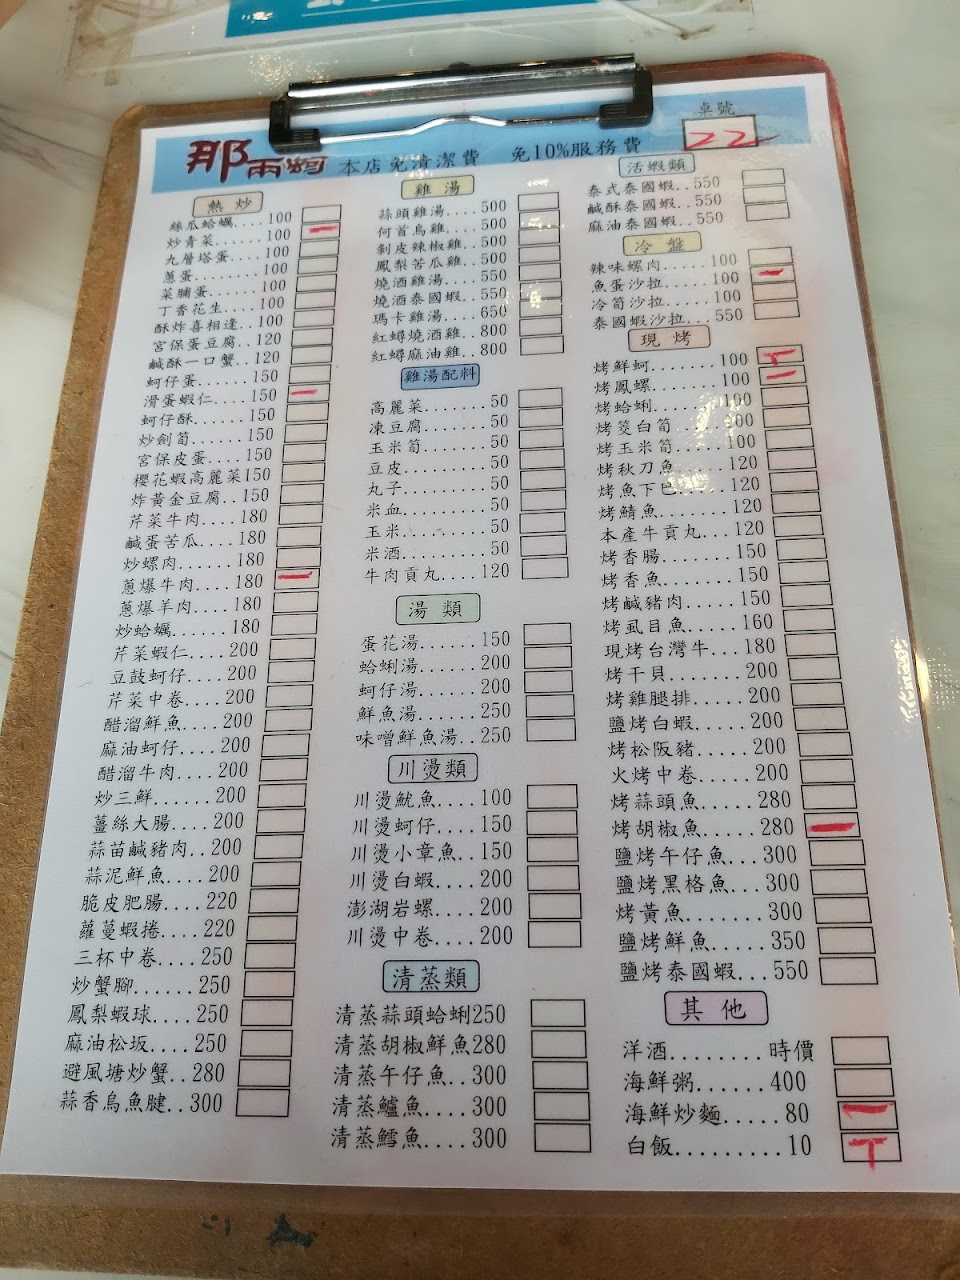 那兩蚵 本店免清潔費 免10%服務費
桌號
22
熱炒
絲瓜蛤蠣....100
炒青菜......100
九層塔蛋....100
蔥蛋........100
菜脯蛋......100
丁香花生....100
酥炸喜相逢..100
宮保蛋豆腐..120
鹹酥一口蟹..120
蚵仔蛋......150
滑蛋蝦仁....150
蚵仔酥......150
炒劍筍......150
宮保皮蛋....150
櫻花蝦高麗菜150
炸黃金豆腐..150
芹菜牛肉....180
鹹蛋苦瓜....180
炒螺肉......180
蔥爆牛肉....180
蔥爆羊肉....180
炒蛤蠣......180
芹菜蝦仁....200
豆鼓蚵仔....200
芹菜中卷....200
醋溜鮮魚....200
麻油蚵仔....200
醋溜牛肉....200
炒三鮮......200
薑絲大腸....200
蒜苗鹹豬肉..200
蒜泥鮮魚....200
脆皮肥腸....220
蘿蔓蝦捲....220
三杯中卷....250
炒蟹腳......250
鳳梨蝦球....250
麻油松坂....250
避風塘炒蟹..280
蒜香烏魚腱..300
雞湯
蒜頭雞湯....500
何首烏雞....500
剝皮辣椒雞..500
鳳梨苦瓜雞..500
燒酒雞湯....550
燒酒泰國蝦..550
瑪卡雞湯....650
紅蟳燒酒雞..800
紅蟳麻油雞..800
雞湯配料
高麗菜......50
凍豆腐......50
玉米筍......50
豆皮........50
丸子........50
米血........50
玉米........50
米酒........50
牛肉貢丸....120
湯類
蛋花湯......150
蛤蜊湯......200
蚵仔湯......200
鮮魚湯......250
味噌鮮魚湯..250
川燙類
川燙魷魚....100
川燙蚵仔....150
川燙小章魚..150
川燙白蝦....200
澎湖岩螺....200
川燙中卷....200
清蒸類
清蒸蒜頭蛤蜊250
清蒸胡椒鮮魚280
清蒸午仔魚..300
清蒸鱸魚....300
清蒸鱈魚....300
活蝦類
泰式泰國蝦..550
鹹酥泰國蝦..550
麻油泰國蝦..550
冷盤
辣味螺肉....100
魚蛋沙拉....100
冷筍沙拉....100
泰國蝦沙拉..550
現烤
烤鮮蚵........100
烤鳳螺........100
烤蛤蜊........100
烤筊白筍....100
烤玉米筍....100
烤秋刀魚....120
烤魚下巴....120
烤鯖魚......120
本產牛貢丸..120
烤香腸......150
烤香魚......150
烤鹹豬肉....150
烤虱目魚....160
現烤台灣牛..180
烤干貝......200
烤雞腿排....200
鹽烤白蝦....200
烤松阪豬....200
火烤中卷....200
烤蒜頭魚....280
烤胡椒魚....280
鹽烤午仔魚..300
鹽烤黑格魚..300
烤黃魚......300
鹽烤鮮魚....350
鹽烤泰國蝦..550
其他
洋酒........時價
海鮮粥......400
海鮮炒麵....80
白飯........10